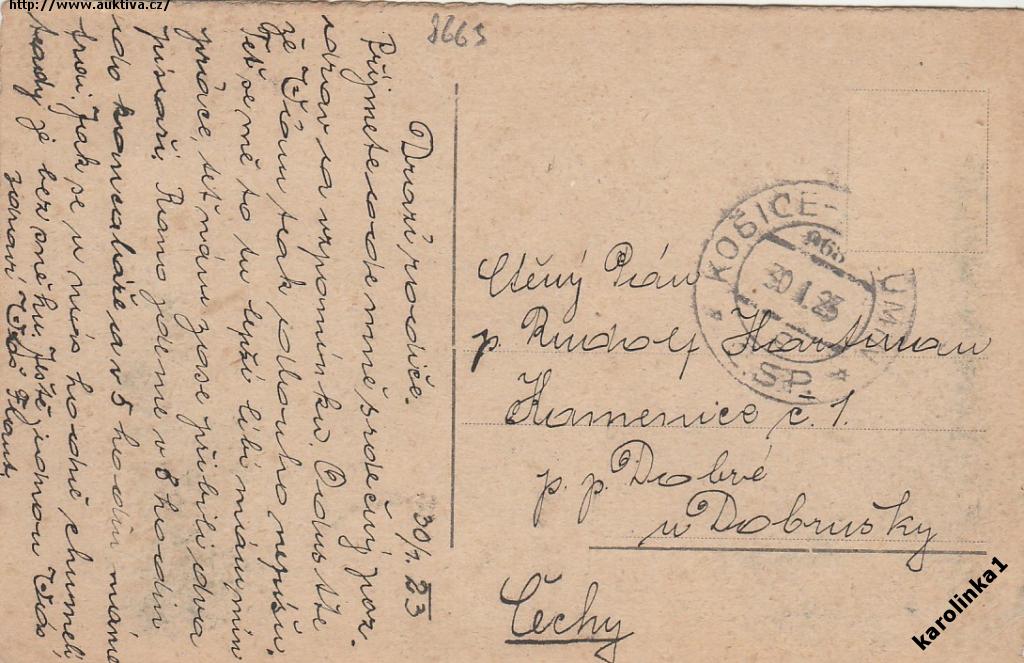 http://www.auktiva.cz/
8665
30/1. 23
Drazí rodiče.
Přijmete ode mne srdečný poz-
drav a vzpomínku. Odpusťte
že Vám tak dlouho nepíšu.
Teť se mě to tu lepší líbí mám mín
práce, teť nám zase přibili dva
písaři. Ráno jdeme v 8 hodin
do kanceláře a v 5 hodin máme
frai. Jak se u nás hodně chumelí
tady je bez sněhu. Ještě jednou Vás
zdraví Váš
KOŠICE-
30 I 23
Ctěný Pán
p. Rudolf Hartman
Kamenice č. 1.
p. p. Dobré
u Dobrušky
Čechy
karolinka1